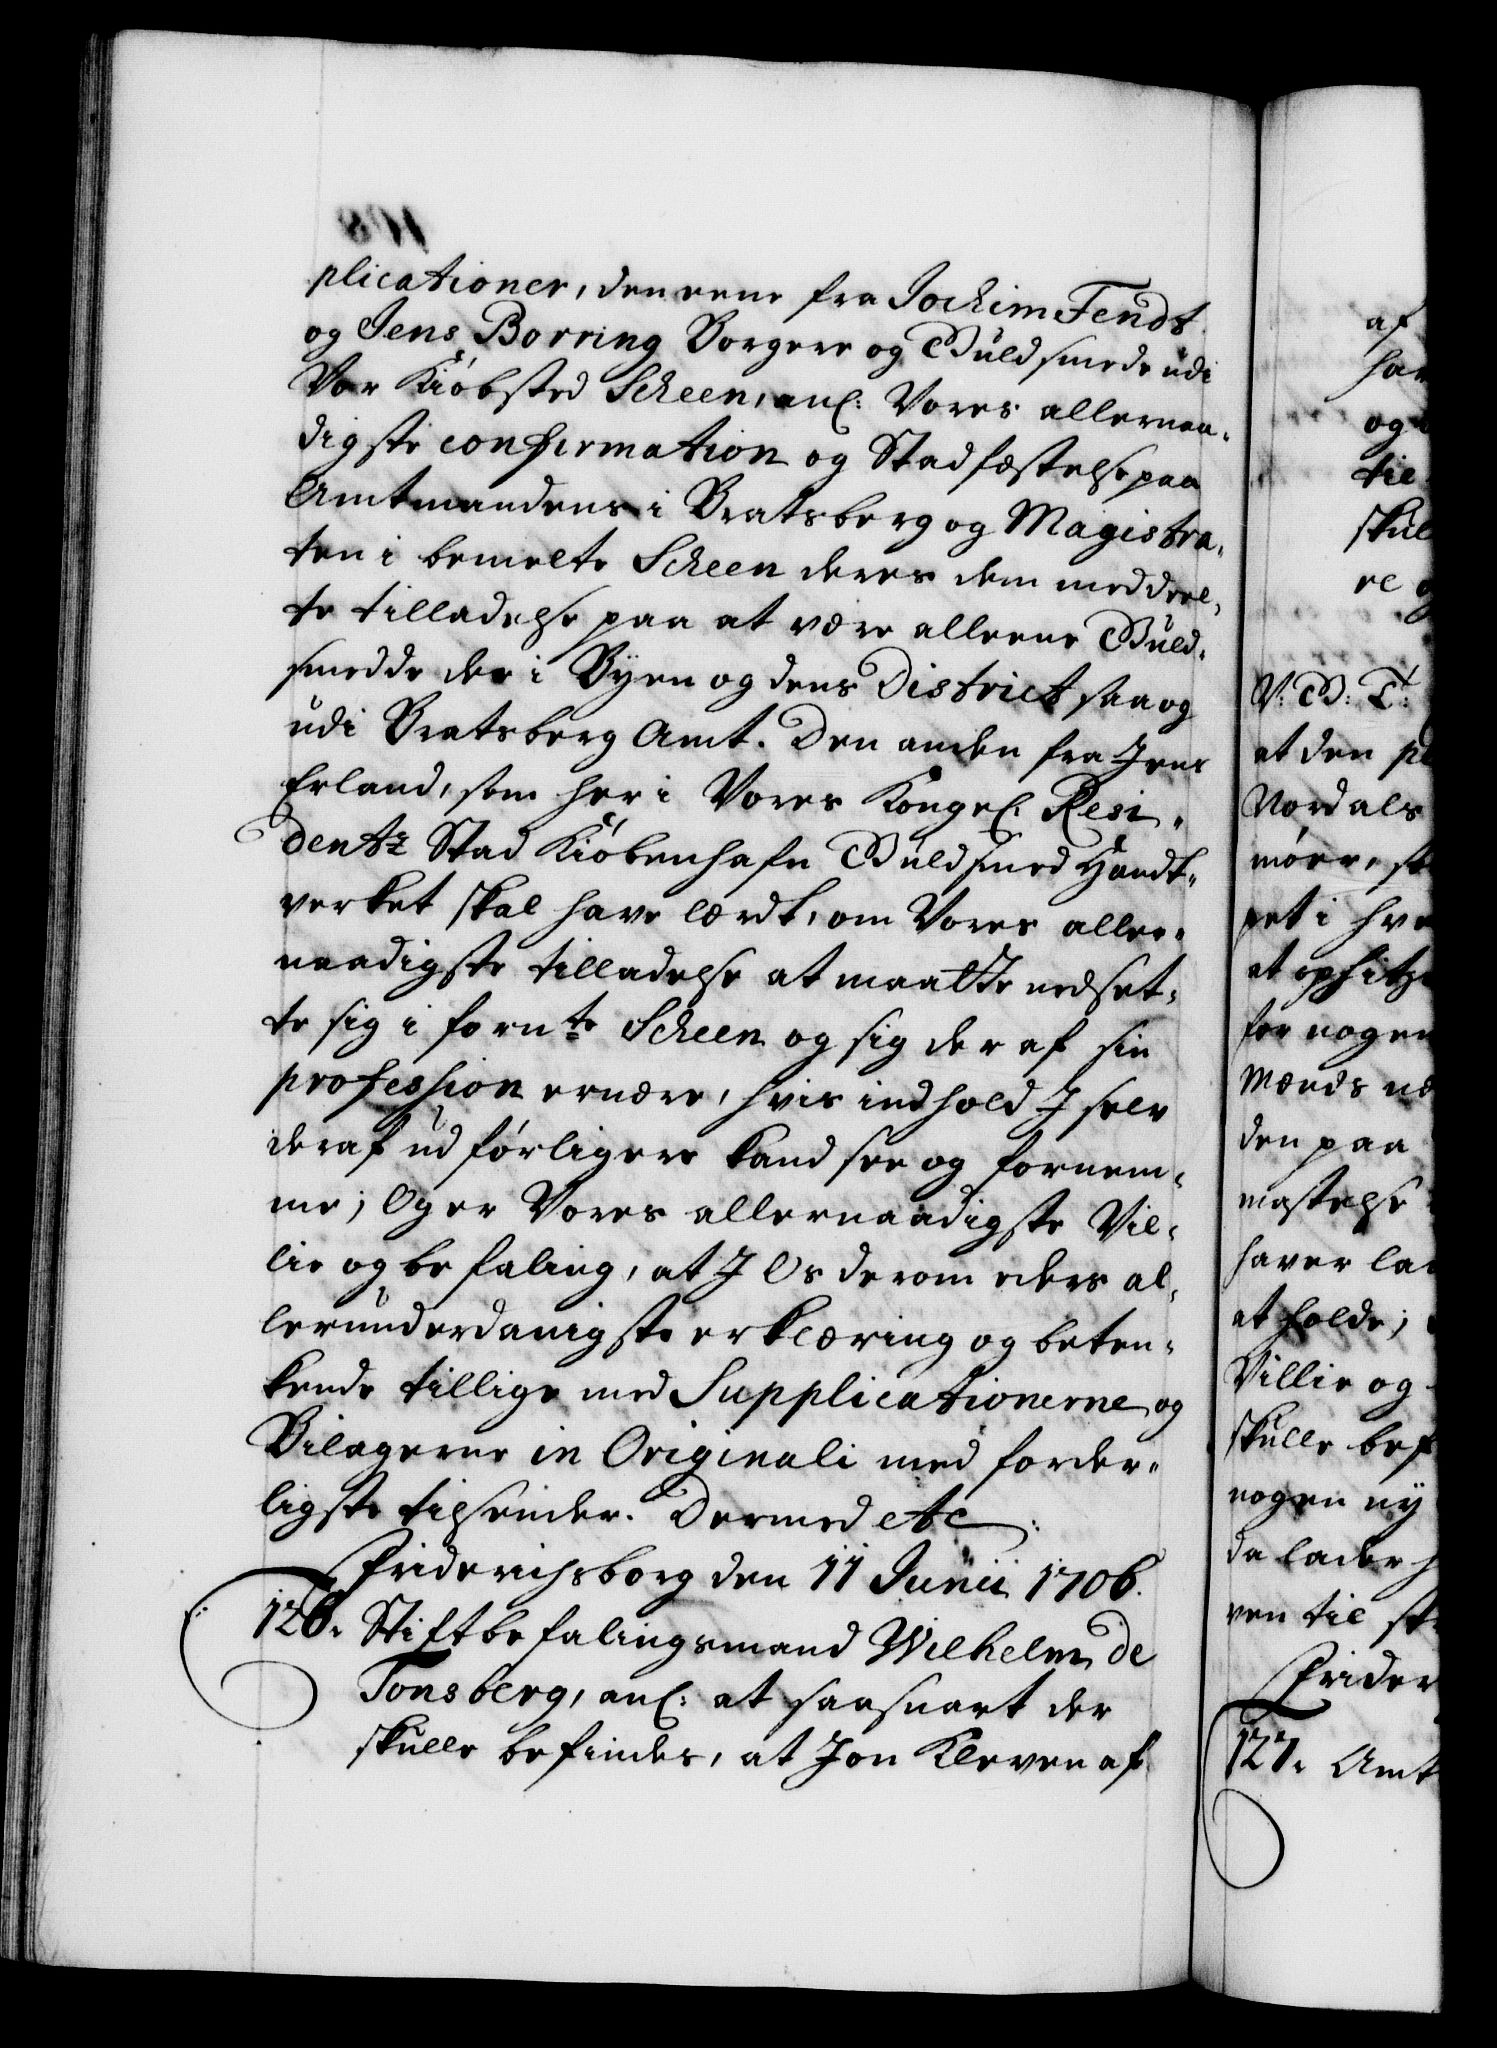 plicationer, den eene fra Jochim Fendt
og Jens Borring Borgere og Guldsmede udi
Vor Kiöbsted Scheen, anl: Vores allernaa-
digste confirmation og Stadfæstelse paa
Amtmandens i Bratsberg og Magistra-
ten i bemelte Scheen deres dem meddeel-
te tilladelse paa at være alleene Guld-
smedde der i Byen og dens District saa og
udi Bratsberg Amt. Den anden fra Jens
Erland, som her i Vores Kongel: Resi-
dentz Stad Kiöbenhafn Guldsmed Handt-
verket skal have lærdt, om Vores aller-
naadigste tilladelse at maatte nedset-
te sig i fornte Scheen og sig der af sin
profession ernære, hvis indhold J selv
deraf udförligere kand see og fornem-
me; Og er Vores allernaadigste Vil-
lie og befaling, at J Os derom eders al-
lerunderdanigste erklæring og beten-
kende tillige med Supplicationerne og
Bilagerne in Originali med forder-
ligste tilsender. Dermed etc:
Friderichsborg den 11 Junii 1706.
126. Stiftbefalingsmand Wilhelm de
Tonsberg, anl: at saasnart der
skulle befindes, at Jon Kleven af
af
og
til
skul
V: G: T:
at den
Nordals
et i
for nogen
den paa
mastelse
haver
at holde;
Villie og
skulle bef
nogen ny
da lader
ven til
Frider
127. Amt